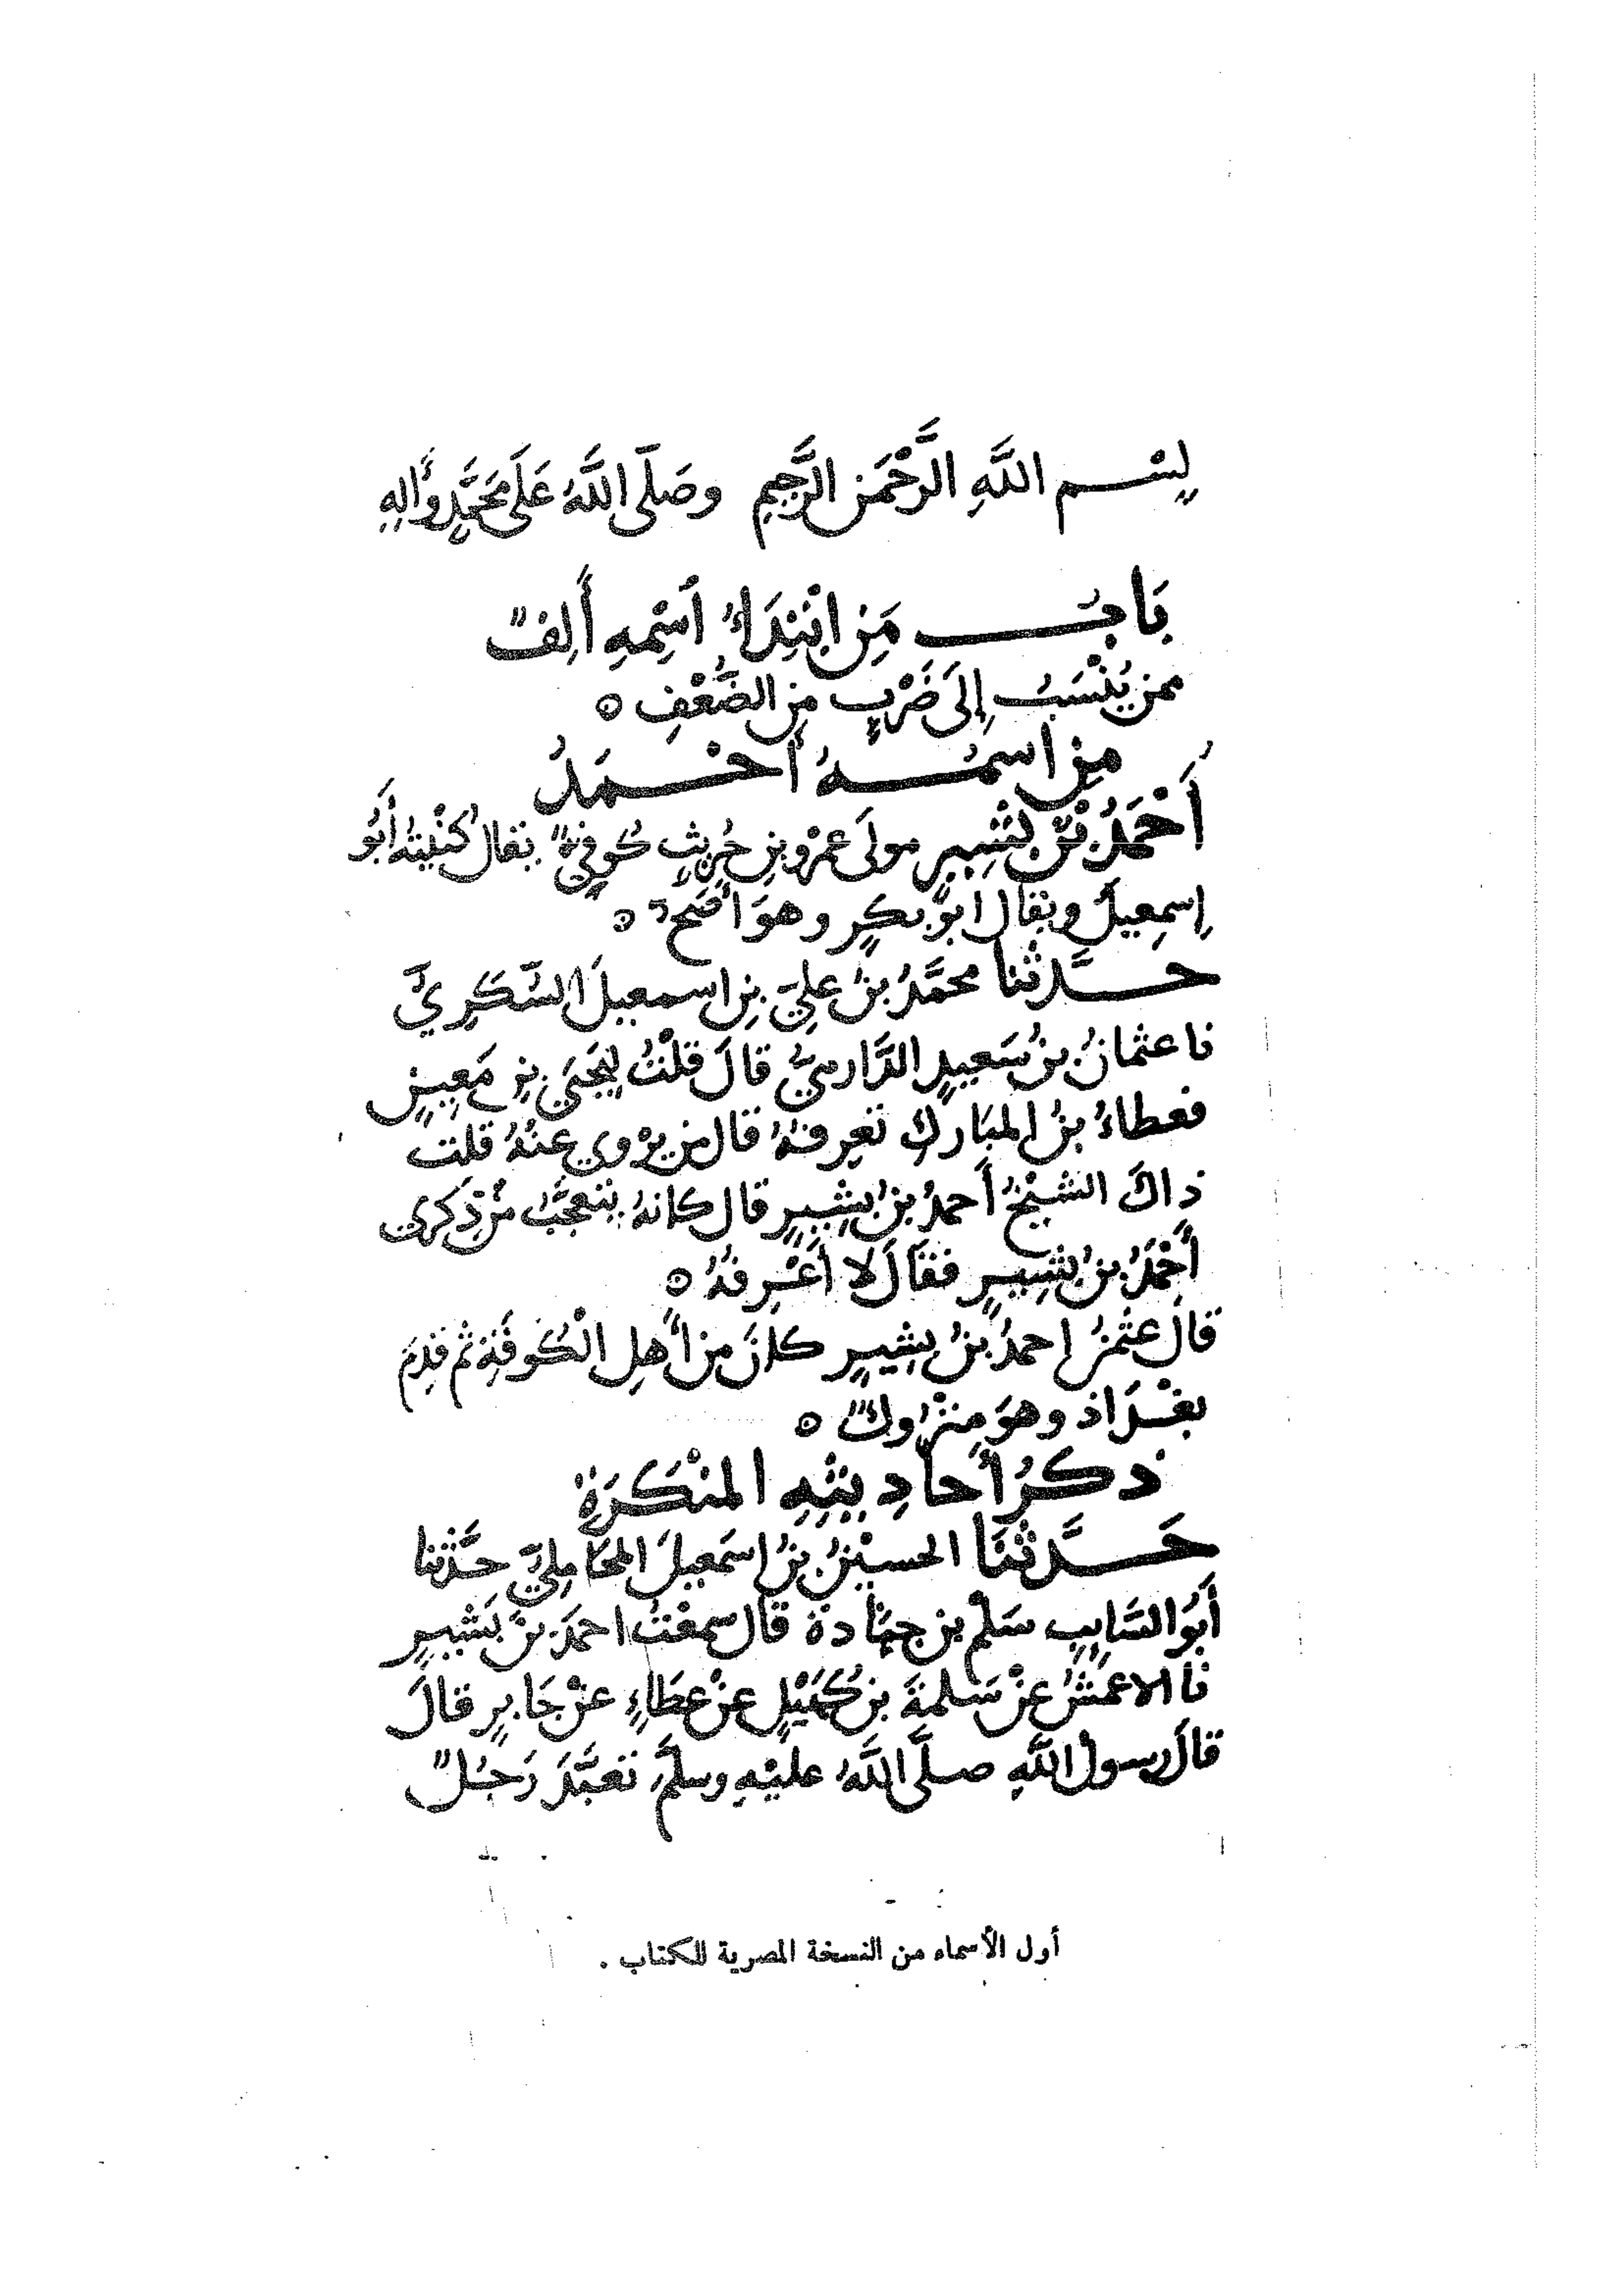 بِسْمِ اللَّهِ الرَّحْمَنِ الرَّحِيمِ وصَلَّى اللَّهُ عَلَى مُحَمَّدٍ وَالِهِ
بَابُ مَنِ ابْتِدَاءُ اسْمِهِ أَلِفٌ
ممن يُنْسَبُ إِلَى ضَرْبٍ مِنَ الضَّعْفِ ه
مِنِ اسمُهُ أَحْمَدُ
أَحْمَدُ بْنُ بَشِيرٍ مولَى عمْرِو بنِ حُرَيثٍ كُوفِيٌّ يقالُ كُنْيتُهُ أَبُو
إسمعِيلَ ويقال ابو بكرٍ وهوَ أَصَحُّ ه
حَدَّثنا محمَّدُ بنُ عليِّ بنِ اسمعيلَ السُّكَرِيُّ
نا عثمانُ بنُ سَعِيدٍ الدَّارميُّ قالَ قلْتُ لِيَحْيَى بنِ مَعِينٍ
فعطاءُ بنُ المبَارك تَعرِفهُ قال من يَرْوي عنْهُ قلت
ذاكَ الشَّيْخُ أحمدُ بنُ بَشِيرٍ قال كانهُ يتعجَّبُ مْنِ ذِكرى
أحْمَدَ بنَ بَشِيرٍ فقالَ لا أَعْرِفهُ ه
قالَ عثمنُ احمدُ بنُ بشِيرٍ كانَ من أَهلِ الْكُوفَةِ ثم قدِمَ
بغْدَاذ وهوَ متْرُوكٌ ه
ذكرُ أَحادِيثِهِ المنْكَرَةِ
حَدَّثنَا الحسيْنُ بنُ إسَمعِيلَ المحَاملِيُّ حدَّثنا
أَبُو السَّايِبِ سَلْم بن جُنَادة قال سمعْتُ احمدَ بنَ بَشيرٍ
نا الاعْمَشُ عنْ سَلمةَ بن كُهَيْلٍ عنْ عطَاءٍ عنْ جَابرٍ قالَ
قالَ رسول اللَّهِ صلَّى اللَّهُ عليْهِ وسلَّمَ تَعبَّدَ رَجُلٌ
أول الأسماء من النسخة المصرية للكتاب .